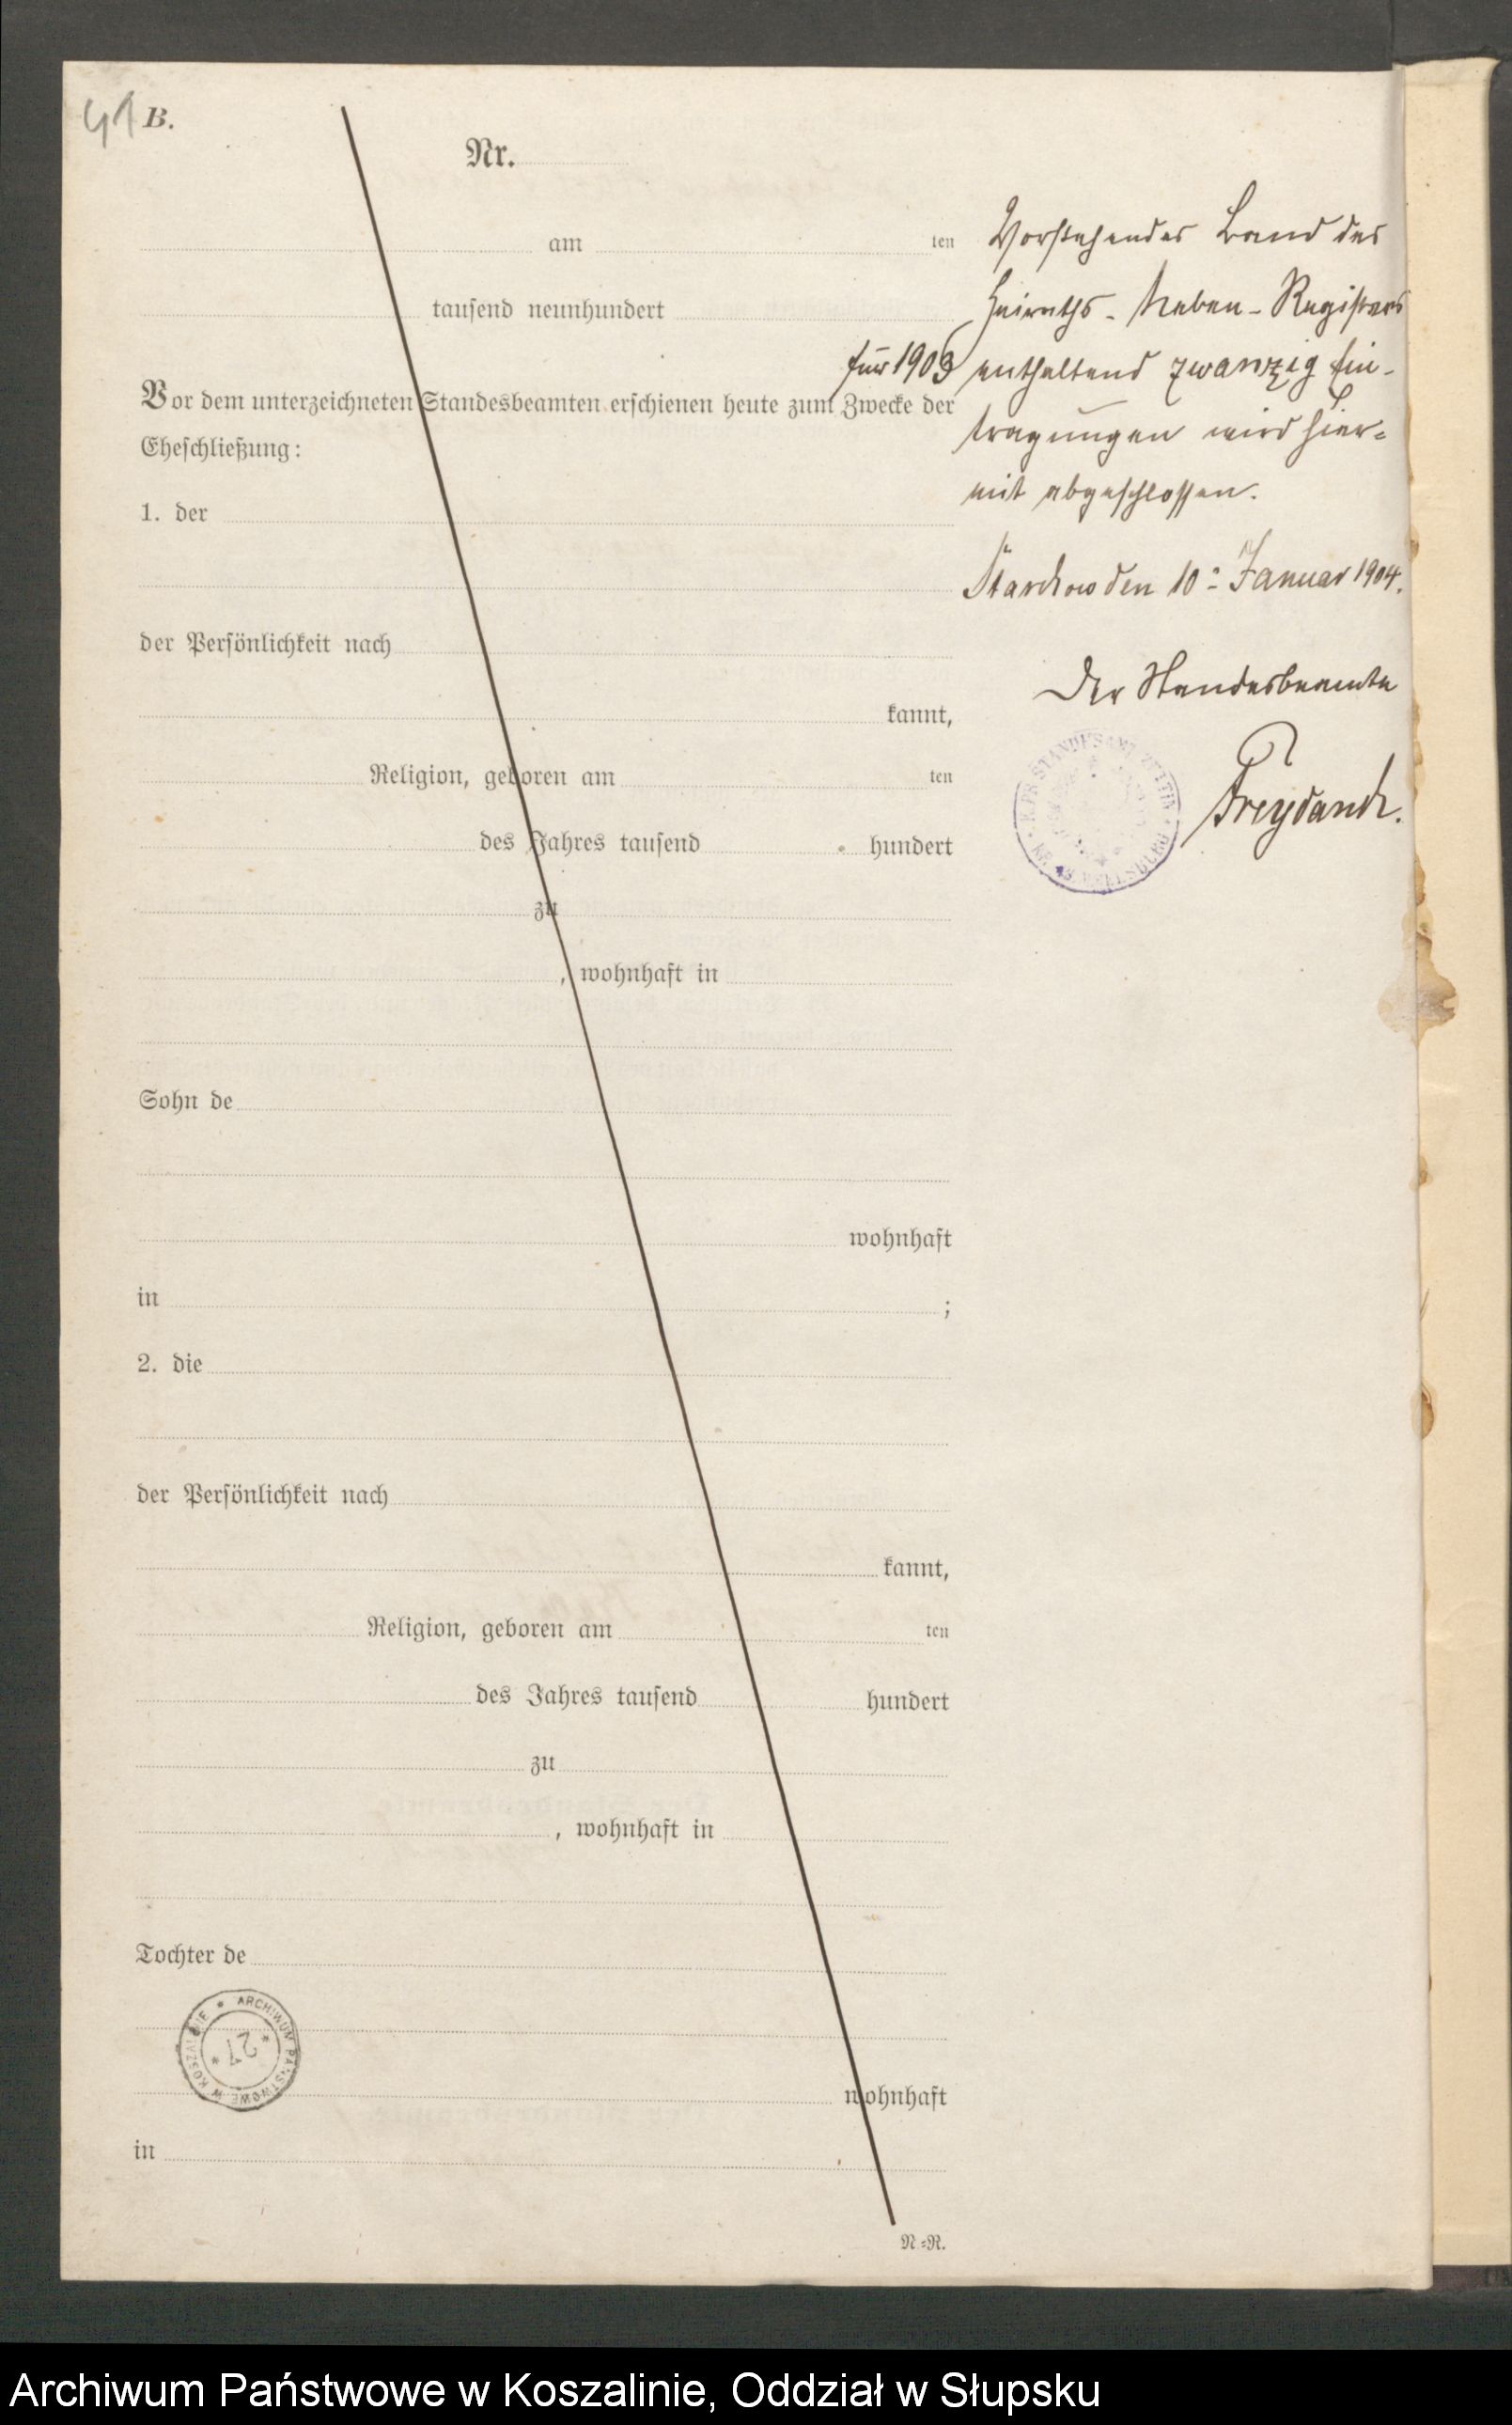 41 B.
Nr.
am ten
tausend neunhundert
Vor dem unterzeichneten Standesbeamten erschienen heute zum Zwecke der
Eheschließung:
1. der
der Persönlichkeit nach
kannt,
Religion, geboren am ten
des Jahres tausend hundert
zu
, wohnhaft in
Sohn de
wohnhaft
in ;
2. die
der Persönlichkeit nach
kannt,
Religion, geboren am ten
des Jahres tausend hundert
zu
, wohnhaft in
Tochter de
wohnhaft
in
N.=R.
Vorstehendes Band des
Heiraths-Neben-Registers
für 1903 enthaltend zwanzig Ein-
tragungen wird hier-
mit abgeschlossen.
den 10. Januar 1904.
Der Standesbeamte
Freydanck.
ARCHIWUM PAŃSTWOWE W KOSZALINIE
* 27 *
Archiwum Państwowe w Koszalinie, Oddział w Słupsku